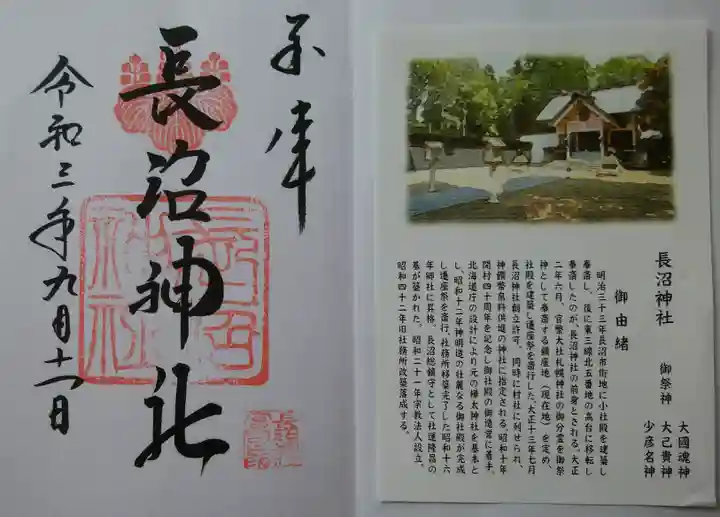 奉拝
長沼神社
令和三年九月十一日
長沼神社
御祭神
大國魂神
大己貴神
少彦名神
御由緒
明治三十三年長沼市街地に小社殿を建築し
奉斎し、後に東三線北五番地の高台に移転し
奉斎したのが、長沼神社の前身とされる。大正
二年六月、官幣大社札幌神社の御分霊を御祭
神として奉斎する鎮座地(現在地)を定め、
社殿を建築し遷座祭を斎行した。大正十三年七月
長沼神社創立許可、同時に村社に列せられ、
神饌幣帛料供進の神社に指定される。昭和十年
開村四十周年を記念し御社殿の御造営に着手、
北海道庁の設計により元の樺太神社を基本と
し、昭和十二年神明造の壮麗なる御社殿が完成
し遷座祭を斎行。社務所移築完了した昭和十六
年郷社に昇格、長沼総鎮守として社運隆昌の
基が築かれた。昭和二十一年宗教法人設立。
昭和四十二年旧社務所改築落成する。